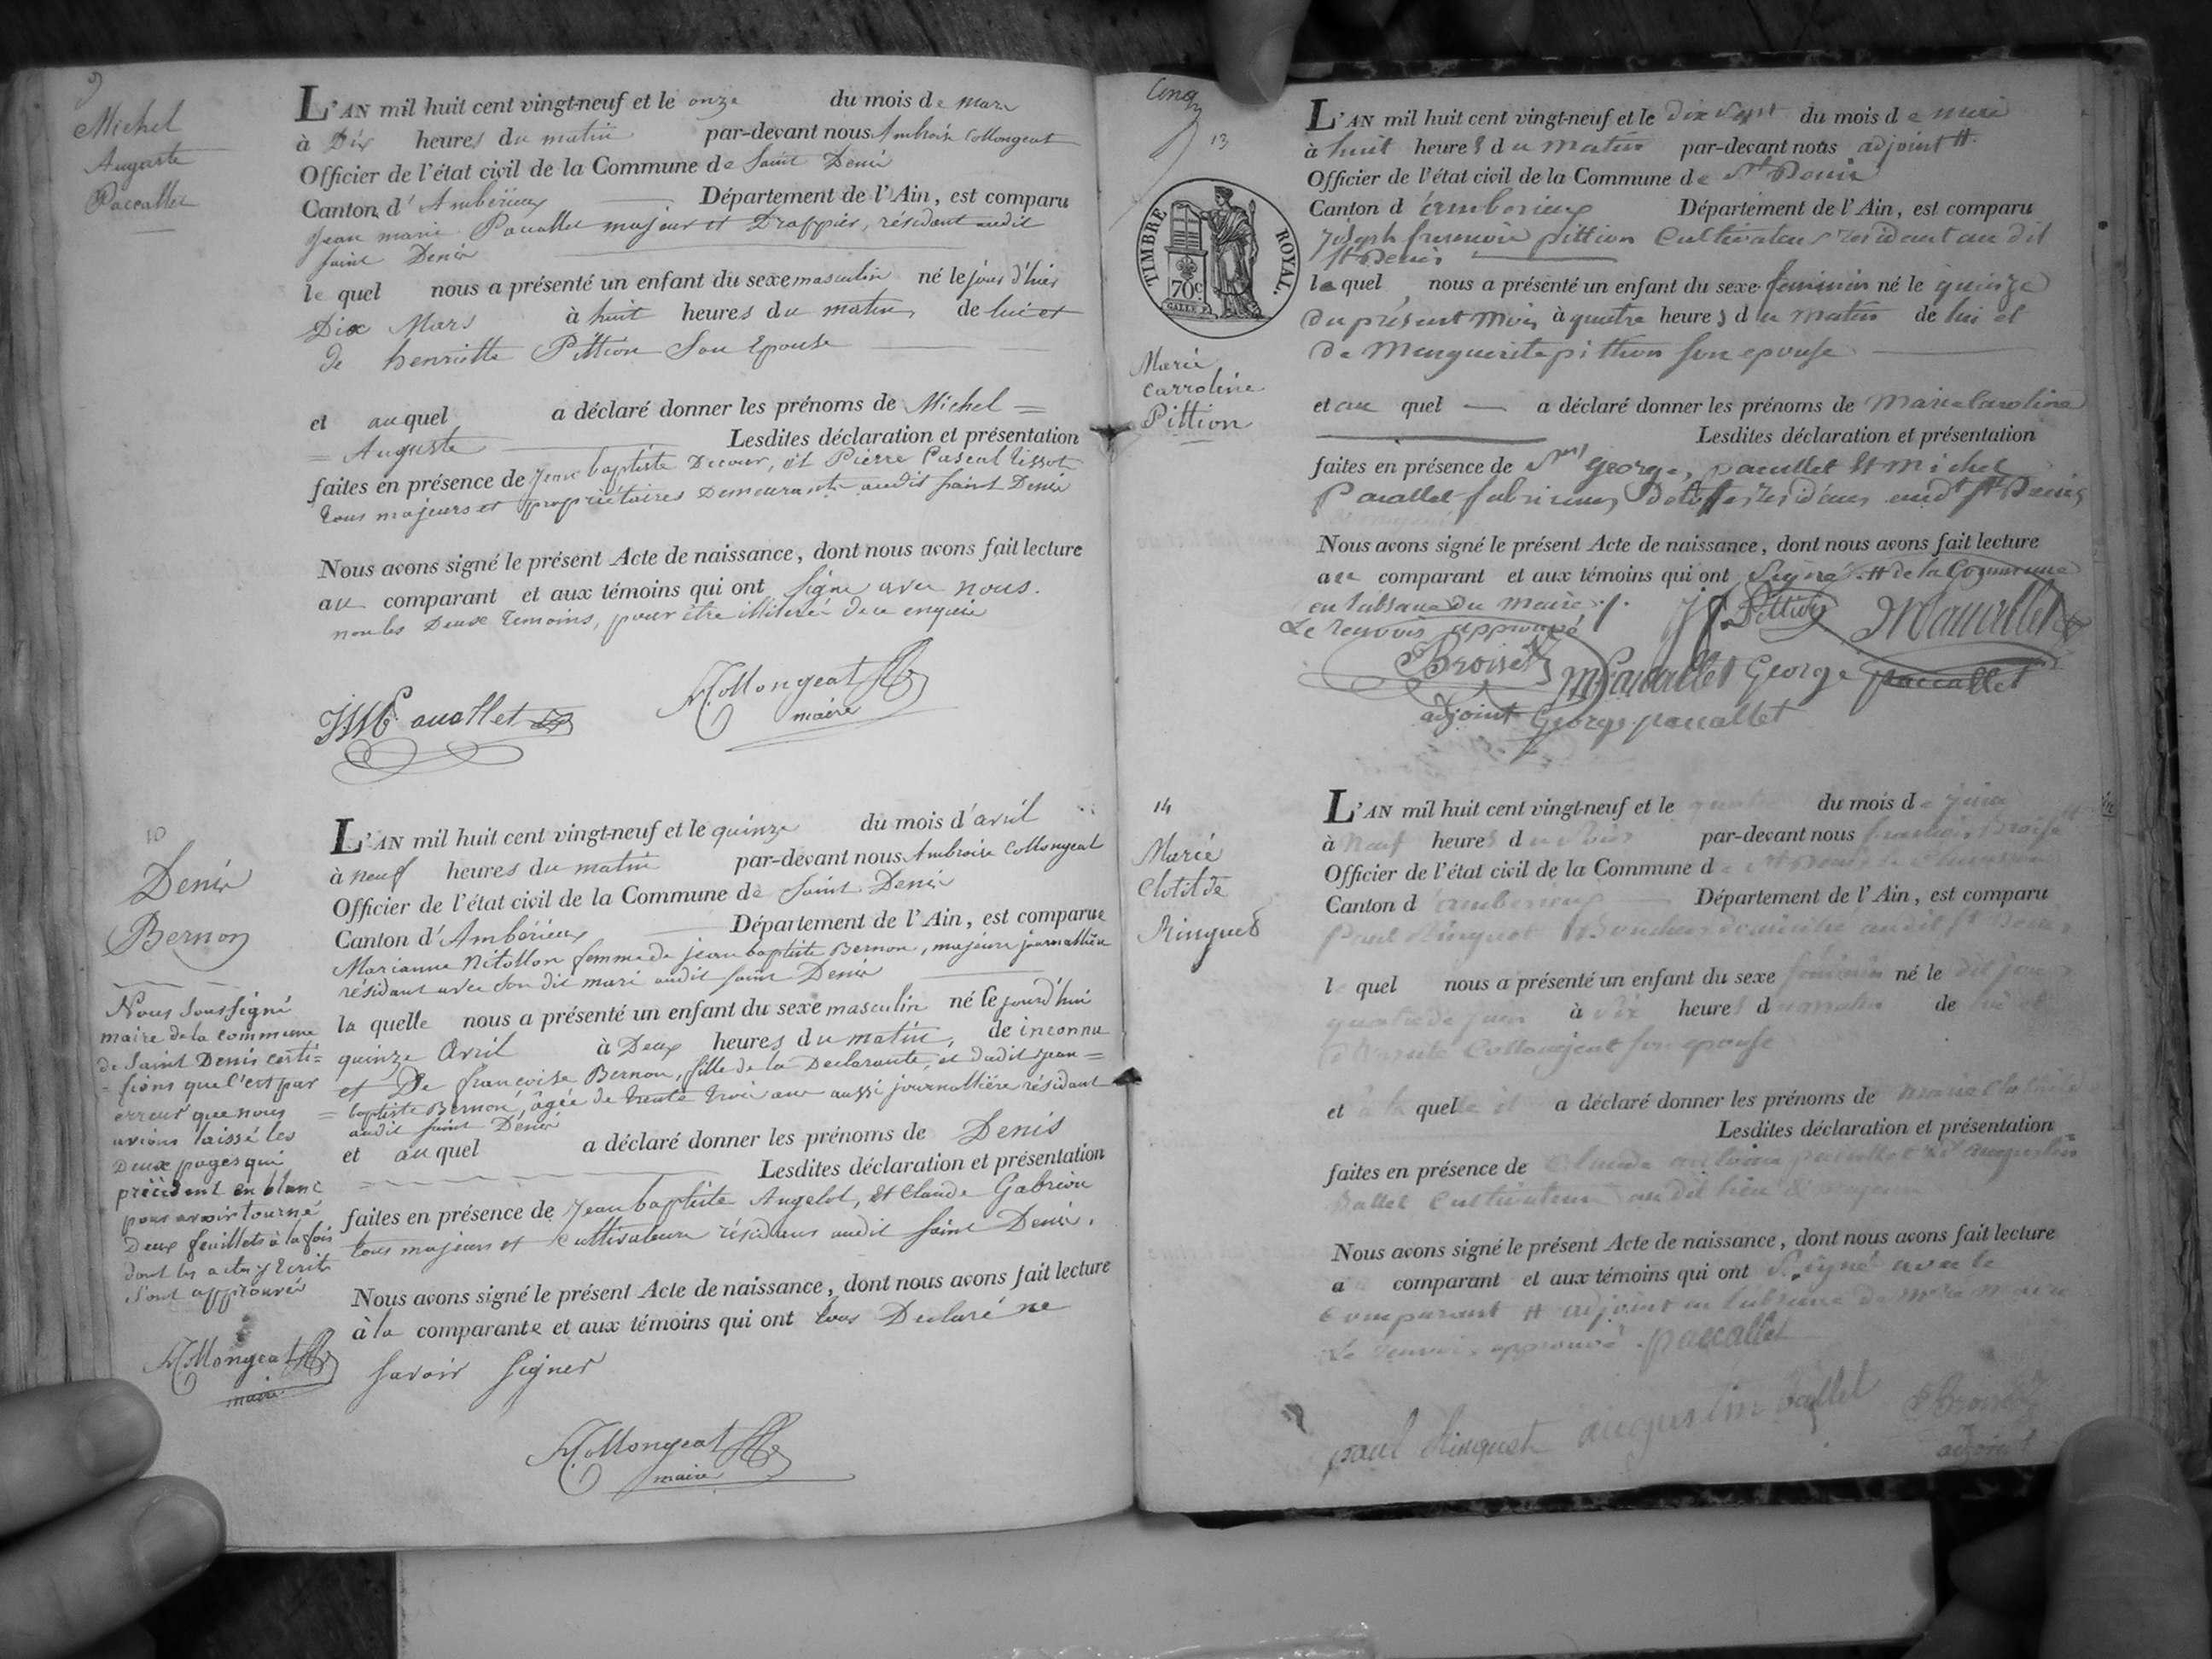 9
Michel
Auguste
Paccallet
L'AN mil huit cent vingt-neuf et le onze du mois de mars
à Dix heures du matin par-devant nous Ambroise Collongeat
Officier de l'état civil de la Commune de Saint Denis
Canton d'Ambérieux Département de l'Ain, est comparu
Jean marie Paccallet majeur et Drappier, résidant audit
Saint Denis
le quel nous a présenté un enfant du sexe masculin né le jour d'hier
Dix Mars à huit heures du matin, de lui et
de henriette Pittion Son Epouse
et au quel a déclaré donner les prénoms de Michel =
= Auguste Lesdites déclaration et présentation
faites en présence de Jean baptiste Decour, et Pierre Pascal Tissot
tous majeurs et propriétaires Demeurants audit Saint Denis
Nous avons signé le présent Acte de naissance, dont nous avons fait lecture
au comparant et aux témoins qui ont signé avec nous.
non les Deux témoins, pour être illiteré de ce enquis
JMPaccallet
ACollongeat
maire
10
Denis
Bernon
Nous Soussigné
maire de la commune
de Saint Denis certi=
=fions que c'est par
erreur que nous
avions laissé les
Deux pages qui
précèdent en blanc
pour avoir tourné
Deux feuillets à la fois
dont les actes y Ecrits
Sont approuvés
ACollongeat
maire
L'AN mil huit cent vingt-neuf et le quinze du mois d'avril
à neuf heures du matin par-devant nous Ambroise Collongeat
Officier de l'état civil de la Commune de Saint Denis
Canton d'Ambérieux Département de l'Ain, est comparue
Marianne Nitollon femme de jean baptiste Bernon, majeure journallière
résidant avec Son dit mari audit Saint Denis
la quelle nous a présenté un enfant du sexe masculin né le jourd'hui
quinze Avril à Deux heures du matin, de inconnu
et De françoise Bernon, fille de la Declarante, et dudit jean=
=baptiste Bernon, âgée de trente trois ans aussi journallière résidant
audit Saint Denis
et au quel a déclaré donner les prénoms de Denis
Lesdites déclaration et présentation
faites en présence de Jean baptiste Angelot, et Claude Gabrion
tous majeurs et Cultivateurs résidans audit Saint Denis.
Nous avons signé le présent Acte de naissance, dont nous avons fait lecture
à la comparante et aux témoins qui ont tous Declaré ne
savoir signer
ACollongeat
maire
Cinq
13
TIMBRE ROYAL.
70c
Marie
Carroline
Pittion
L'AN mil huit cent vingt-neuf et le dix sept du mois de
à huit heures du matin par-devant nous adjoint #
Officier de l'état civil de la Commune de St Denis
Canton d'amberieux Département de l'Ain, est comparu
Joseph pittion Cultivateur residant au dit
St Denis
le quel nous a présenté un enfant du sexe feminin né le quinze
du présent mois à quatre heures du matin de lui et
de Marguerite pittion son epouse
et au quel a déclaré donner les prénoms de Marie Caroline
Lesdites déclaration et présentation
faites en présence de George, paccallet et michel
Paccallet St Denis
Nous avons signé le présent Acte de naissance, dont nous avons fait lecture
au comparant et aux témoins qui ont Signé. # de la Commune
en l'absence du maire ./.
Le renvois approuvé
JfPittion
JMPaccallet
Broiset
MPaccallet George paccallet
adjoint George paccallet
14
Marie
Clotilde
Ringuet
L'AN mil huit cent vingt-neuf et le quatre du mois de juin
à neuf heures du par-devant nous
Officier de l'état civil de la Commune d
Canton d'amberieux Département de l'Ain, est comparu
Paul Ringuet domicilié audit St Denis
l quel nous a présenté un enfant du sexe féminin né le dit jour
quatre de juin à dix heures du matin de lui et
Collongeat son epouse
et quel a déclaré donner les prénoms de marie Clotilde
Lesdites déclaration et présentation
faites en présence de Claude antoine paccallet et augustin
Ballet Cultivateurs au dit lieu
Nous avons signé le présent Acte de naissance, dont nous avons fait lecture
a comparant et aux témoins qui ont Signé avec le
comparant # adjoint en l'absence de maire
Le renvois approuvé. paccallet
paul Ringuet augustin ballet Broiset
adjoint